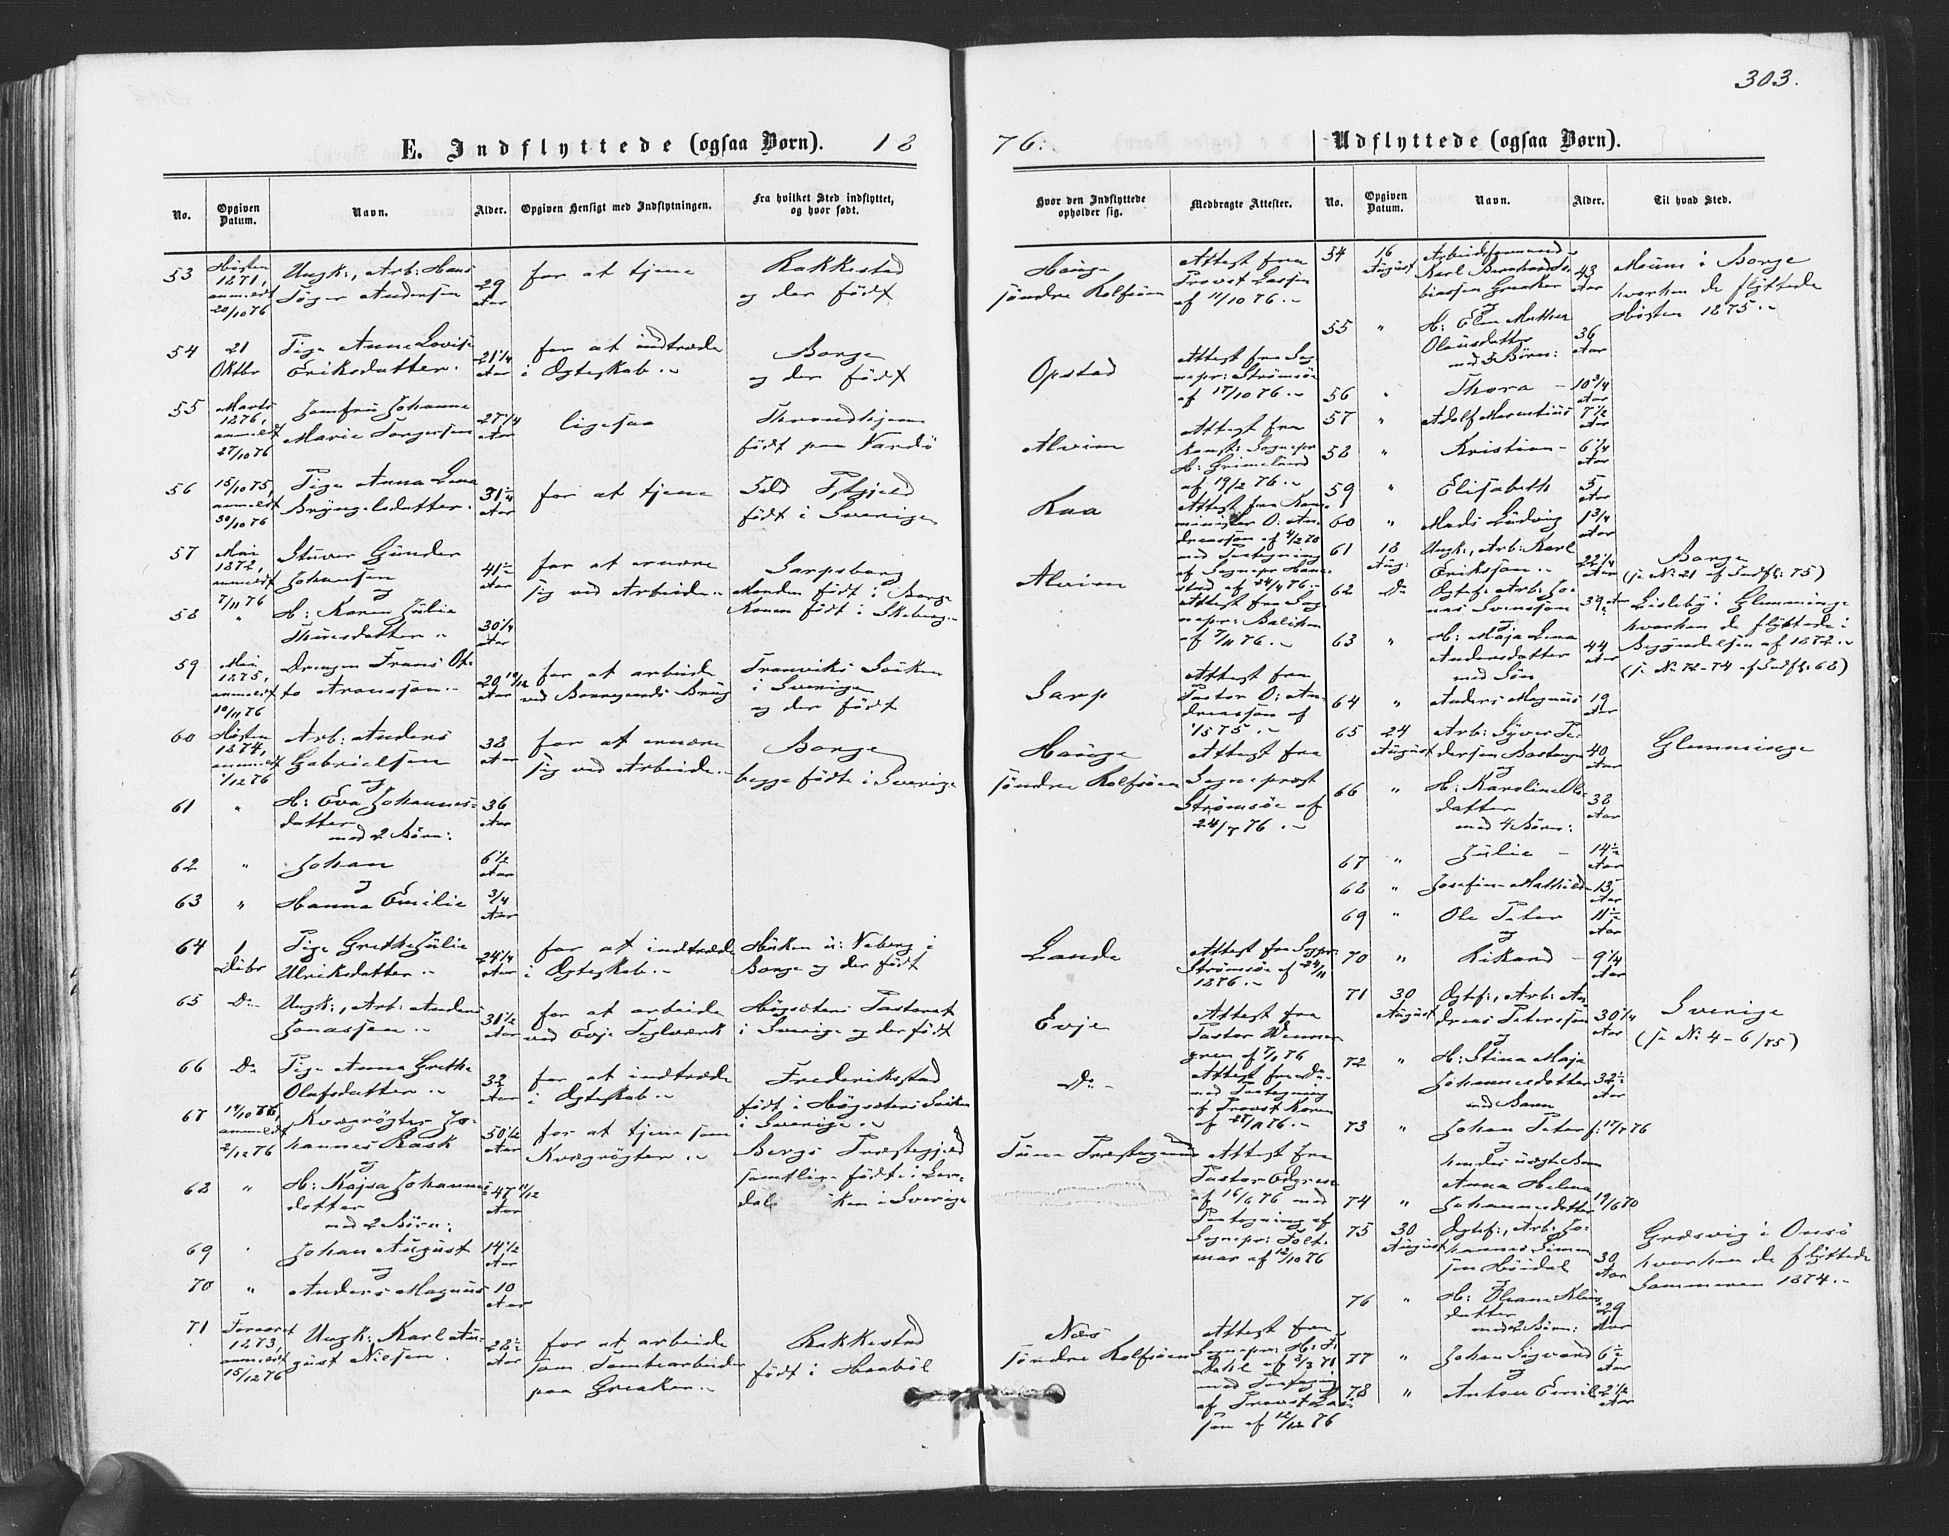 303.
E. Indflyttede (ogsaa Børn). 18
76. Udflyttede (ogsaa Børn).
No. Opgiven Datum. Navn. Alder. Opgiven Hensigt med Indflytningen. Fra hvilket Sted indflyttet, og hvor født.
Hvor den Indflyttede opholder sig. Medbragte Attester. No. Opgiven Datum. Navn. Alder. Til hvad Sted.
53 Høsten Ungk:, Arb: Hans for at tjene Rakkestad
1871, anmeldt 29 Aar og der født
20/10 76
54 21 Pige Anne Lovise 21 1/4 for at indtræde Borge
Oktbr Eriksdatter. Aar i Ægteskab. og der født
55 Marts Jomfru Johanne 27 1/4 ligesaa Throndhjem
1876, anmeldt Marie Torgersen Aar født paa Vardö
27/10 76
56 15/10 75, Pige Anna Lena 31 1/4 for at tjene
anmeldt Bryngelsdatter. Aar født i Sverige
30/10 76
57 Mai Stuver Gunder 41 1/2 for at ernære Sarpsborg
1872, anmeldt Johansen Aar sig ved Arbeide Manden født i Borge
7/11 76 og Konen født i Skeberg
58 " H: Karen Julie 30 1/4
Thuesdatter Aar
59 Mai Drengen Frans Ot- for at arbeide
1875, anmeldt to Aronsson Aar ved Borregaards Brug i Sverige
10/11 76 og der født
60 Høsten Arb: Anders 38 for at ernære Borge
1874, anmeldt Gabrielsen Aar sig ved Arbeide begge født i Sverige
1/12 76 og
61 " H: Eva Johannes- 36
datter Aar
med 2 Børn:
62 " Johan 6 1/2
og Aar
63 " Hanna Emilie 3/4
Aar
64 1 Pige Grethe Julie 24 1/4 for at indtræde
Debr Ulriksdatter Aar i Ægteskab. Borge og der født
65 Do Ungk:, Arb: Anders 31 1/2 for at arbeide Högsäters Pastorat
Jonassen Aar ved Evje Teglværk i Sverige og der født
66 Do Pige Anna Grethe 32 for at indtræde Frederikstad
Olafsdatter Aar i Ægteskab. født i Högsäters Soken
i Sverige
67 anmeldt Kvægrøgter Jo- 50 1/2 for at tjene som Bergs Præstegjeld
2/12 76 hannes Rask Aar Kvægrøgter samtlige født i
og
68 " H: Kajsa Johannes- 47 11/12 i Sverige
datter Aar
med 2 Børn:
69 " Johan August 14 1/2
og Aar
70 " Anders Magnus 10
Aar
71 Foraaret Ungk: Karl Au- 28 1/2 for at arbeide Rakkestad
1873, anmeldt gust Nilsen Aar som Tomtearbeider født i Haabøl
15/12 76 paa Greaker
Hauge Attest fra
søndre Rolfsøen Provst Lassen
af 11/10 76
Opstad Attest fra Sog-
nepr: Strømsøe
af 17/10 76
Alvim Attest fra
konst: Sognepr
H: Grimelund
af 19/2 76
Kaa
med Paategning
Alvim af Sognepr
af 24/4 76
Attest fra Sog-
nepr:
af 7/11 76
Sarp Attest fra
Pastor O: An-
dreassen af
1875
Hauge Attest fra
søndre Rolfsøen Sognepræst
Strømsøe af
24/ 76
Lande Attest fra Sogpr:
Strømsøe af 24/11
1876
Evje Attest fra
Pastor Wenner-
gren af 7/1 76
Do Attest fra Do
med Paategning
af Provst Koren
af 28/11 76
Tune Præstegaard Attest fra
Pastor Edgren
af 16/6 76 med
Paategning af
Sognepr:
af 12/10 76
Næs Attest fra
søndre Rolfsøen Sognepr: H: F:
af 3/3 71
med Paategning
af Provst Las-
sen af 12/12 76
54 16 August Arbeidsformand
Karl Bernhard 43 Moum i Borge
Greaker Aar hvorhen de flyttede
og Høsten 1875
55 " H: Elen Mathea 36
Olausdatter Aar
med 5 Børn:
56 " Thora 10 3/4 Aar
57 " Adolf Marentius 7 1/2 Aar
58 " Kristian 6 1/4 Aar
59 " Elisabeth 5 Aar
60 " Mads Ludvig 1 3/4 Aar
61 18 Aug: Ungk:, Arb: Karl 22 1/4 Borge
Eriksson Aar (s. No 21 af Indfl: 75)
62 Do Ægtef: Arb: Jo- 39 Lisleby i Glemminge
nas Svensson hvorhen de flyttede i
og
63 " H: Maja Lena 44 Begyndelsen af 1872
Andersdatter Aar (s. No 72-74 af Indfl: 68)
med Søn
64 " Anders Magnus 19 Aar
65 24 August Arb: Syver Pe- 40 Glemminge
dersen Aar
og
66 " H: Karoline Ols- 38
datter Aar
med 4 Børn:
67 " Julie 14 1/2 Aar
68 " Josefine Mathilde 13 Aar
69 " Ole Peter 11 1/2 Aar
og
70 " Rikard 9 1/4 Aar
71 30 August Ægtef:, Arb: An- Sverige
dreas Peterssen 30 1/4 Aar (s. No 4-6/75)
og
72 " H: Stina Maja
Johannesdatter 32 1/2
med Barn Aar
73 " Johan Peter f: 17/7 76
og
hendes uægte Barn
Anna Helena
74 " Johannesdatter 19/6 70
75 30 August Ægtef:, Arb: Jo- Græsvig i Onsø
hannes Simen- 30 hvorhen de flyttede
sen Høidal Aar Sommeren 1874
og
76 " H:
datter 29
med 2 Børn: Aar
77 " Johan Sigvard 6 1/2
og Aar
78 " Anton Emil 2 1/2
Aar